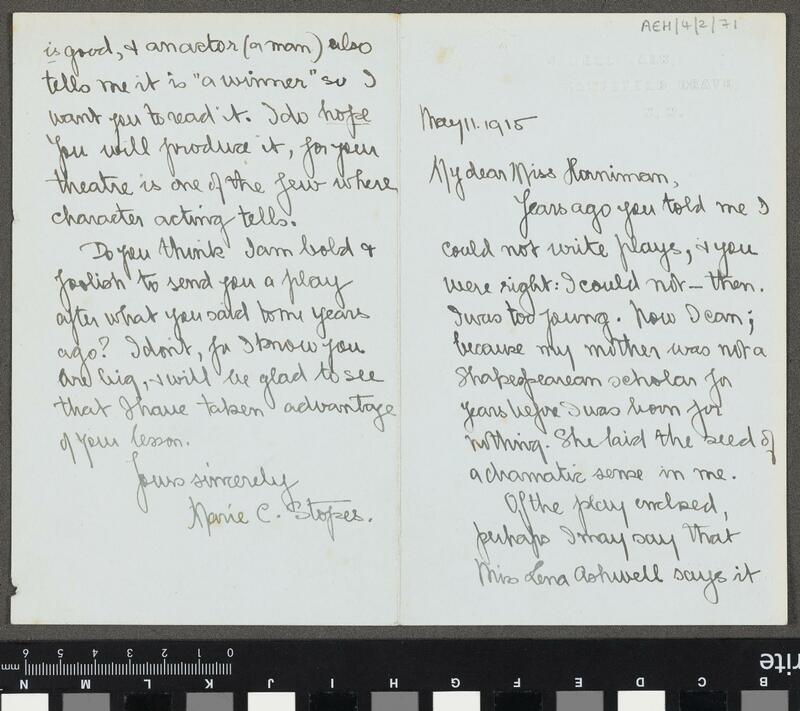 AEH/4/2/71
May 11. 1915
My dear Miss Horniman,
Years ago you told me I
could not write plays, & you
were right: I could not – then.
I was too young. Now I can;
because my mother was not a
Shakespearean scholar for
years before I was born for
nothing. She laid the seed of
a dramatic sense in me.
Of the play enclosed,
perhaps I may say that
Miss Lena Ashwell says it
is good, & an actor (a man) also
tells me it is "a winner" so I
want you to read it. I do hope
you will produce it, for your
theatre is one of the few where
character acting tells.
Do you think I am bold &
foolish to send you a play
after what you said to me years
ago? I don't, for I know you
are big, & will be glad to see
that I have taken advantage
of your lesson.
Yours sincerely
Marie C. Stopes.
mm 6 5 4 3 2 1 0
N M L K J H G F E D C B
rite